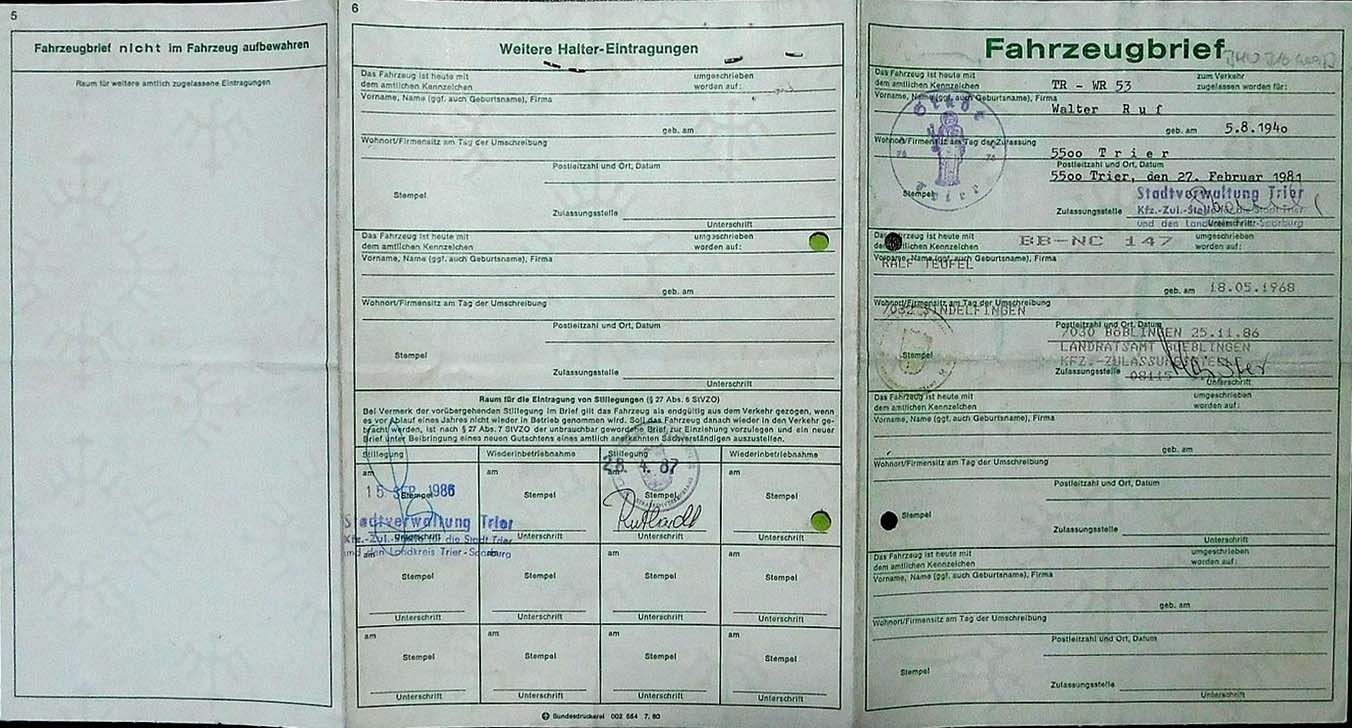 5
Fahrzeugbrief nicht im Fahrzeug aufbewahren
Raum für weitere amtlich zugelassene Eintragungen
6
Weitere Halter-Eintragungen
Das Fahrzeug ist heute mit
dem amtlichen Kennzeichen
umgeschrieben
worden auf:
Vorname, Name (ggf. auch Geburtsname), Firma
geb. am
Wohnort/Firmensitz am Tag der Umschreibung
Postleitzahl und Ort, Datum
Stempel
Zulassungsstelle
Unterschrift
Das Fahrzeug ist heute mit
dem amtlichen Kennzeichen
umgeschrieben
worden auf:
Vorname, Name (ggf. auch Geburtsname), Firma
geb. am
Wohnort/Firmensitz am Tag der Umschreibung
Postleitzahl und Ort, Datum
Stempel
Zulassungsstelle
Unterschrift
Raum für die Eintragung von Stillegungen (§ 27 Abs. 6 StVZO)
Bei Vermerk der vorübergehenden Stillegung im Brief gilt das Fahrzeug als endgültig aus dem Verkehr gezogen, wenn
es vor Ablauf eines Jahres nicht wieder in Betrieb genommen wird. Soll das Fahrzeug danach wieder in den Verkehr ge-
bracht werden, ist nach § 27 Abs. 7 StVZO der unbrauchbar gewordene Brief zur Einziehung vorzulegen und ein neuer
Brief unter Beibringung eines neuen Gutachtens eines amtlich anerkannten Sachverständigen auszustellen.
Stillegung Wiederinbetriebnahme Stillegung Wiederinbetriebnahme
am am 28. 4. 87 am
15. SEP. 1986
Stempel Stempel Stempel Stempel
Stadtverwaltung Trier
Kfz.-Zul.-Stelle für die Stadt Trier
und den Landkreis Trier-Saarburg
Unterschrift Unterschrift Unterschrift Unterschrift
am am am am
Stempel Stempel Stempel Stempel
Unterschrift Unterschrift Unterschrift Unterschrift
am am am am
Stempel Stempel Stempel Stempel
Unterschrift Unterschrift Unterschrift Unterschrift
Bundesdruckerei 002 564 7. 80
Fahrzeugbrief
Das Fahrzeug ist heute mit
dem amtlichen Kennzeichen
TR - WR 53
zum Verkehr
zugelassen worden für:
Vorname, Name (ggf. auch Geburtsname), Firma
Walter Ruf
geb. am 5.8.1940
Wohnort/Firmensitz am Tag der Zulassung
55oo Trier
Postleitzahl und Ort, Datum
55oo Trier, den 27. Februar 1981
Stadt
Trier
Stempel
Stadtverwaltung Trier
Zulassungsstelle
Kfz.-Zul.-Stelle für die Stadt Trier
und den Landkreis Trier-Saarburg
Unterschrift
Das Fahrzeug ist heute mit
dem amtlichen Kennzeichen
BB-NC 147
umgeschrieben
worden auf:
Vorname, Name (ggf. auch Geburtsname), Firma
RALF TEUFEL
geb. am 18.05.1968
Wohnort/Firmensitz am Tag der Umschreibung
7032 SINDELFINGEN
Postleitzahl und Ort, Datum
7030 BÖBLINGEN 25.11.86
LANDRATSAMT BOEBLINGEN
KFZ.-ZULASSUNGSSTELLE
Stempel
Zulassungsstelle 08115
Unterschrift
Das Fahrzeug ist heute mit
dem amtlichen Kennzeichen
umgeschrieben
worden auf:
Vorname, Name (ggf. auch Geburtsname), Firma
geb. am
Wohnort/Firmensitz am Tag der Umschreibung
Postleitzahl und Ort, Datum
Stempel
Zulassungsstelle
Unterschrift
Das Fahrzeug ist heute mit
dem amtlichen Kennzeichen
umgeschrieben
worden auf:
Vorname, Name (ggf. auch Geburtsname), Firma
geb. am
Wohnort/Firmensitz am Tag der Umschreibung
Postleitzahl und Ort, Datum
Stempel
Zulassungsstelle
Unterschrift